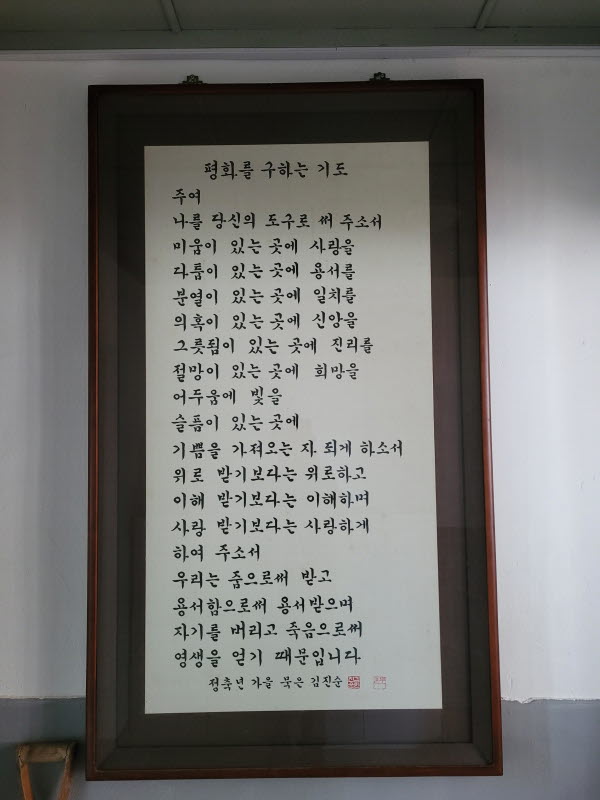 평화를 구하는 기도
주여
나를 당신의 도구로 써 주소서
미움이 있는 곳에 사랑을
다툼이 있는 곳에 용서를
분열이 있는 곳에 일치를
의혹이 있는 곳에 신앙을
그릇됨이 있는 곳에 진리를
절망이 있는 곳에 희망을
어두움에 빛을
슬픔이 있는 곳에
기쁨을 가져오는 자 되게 하소서
위로 받기보다는 위로하고
이해 받기보다는 이해하며
사랑 받기보다는 사랑하게
하여 주소서
우리는 줌으로써 받고
용서함으로써 용서받으며
자기를 버리고 죽음으로써
영생을 얻기 때문입니다
정축년 가을 묵은 김진순